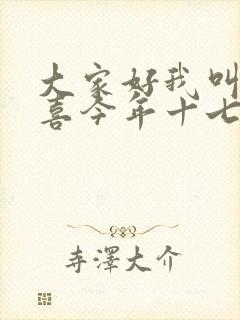 大家好我叫
喜今年十七
寺澤大介